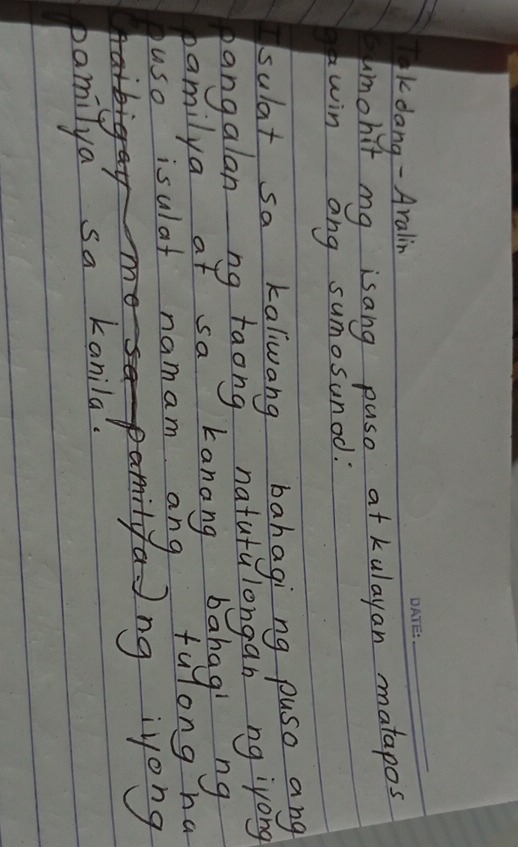 DATE:
Takdang-Aralin
Gumohit ng isang puso at kulayan matapos
gawin ang sumosunod:
Isulat sa kaliwang bahagi ng puso ang
pangalan ng taong natutulongan ng iyong
pamilya at sa kanang bahagi ng
puso isulat namam ang tulong na
(naibigay mo sa pamilya) ng iyong
pamilya sa kanila.